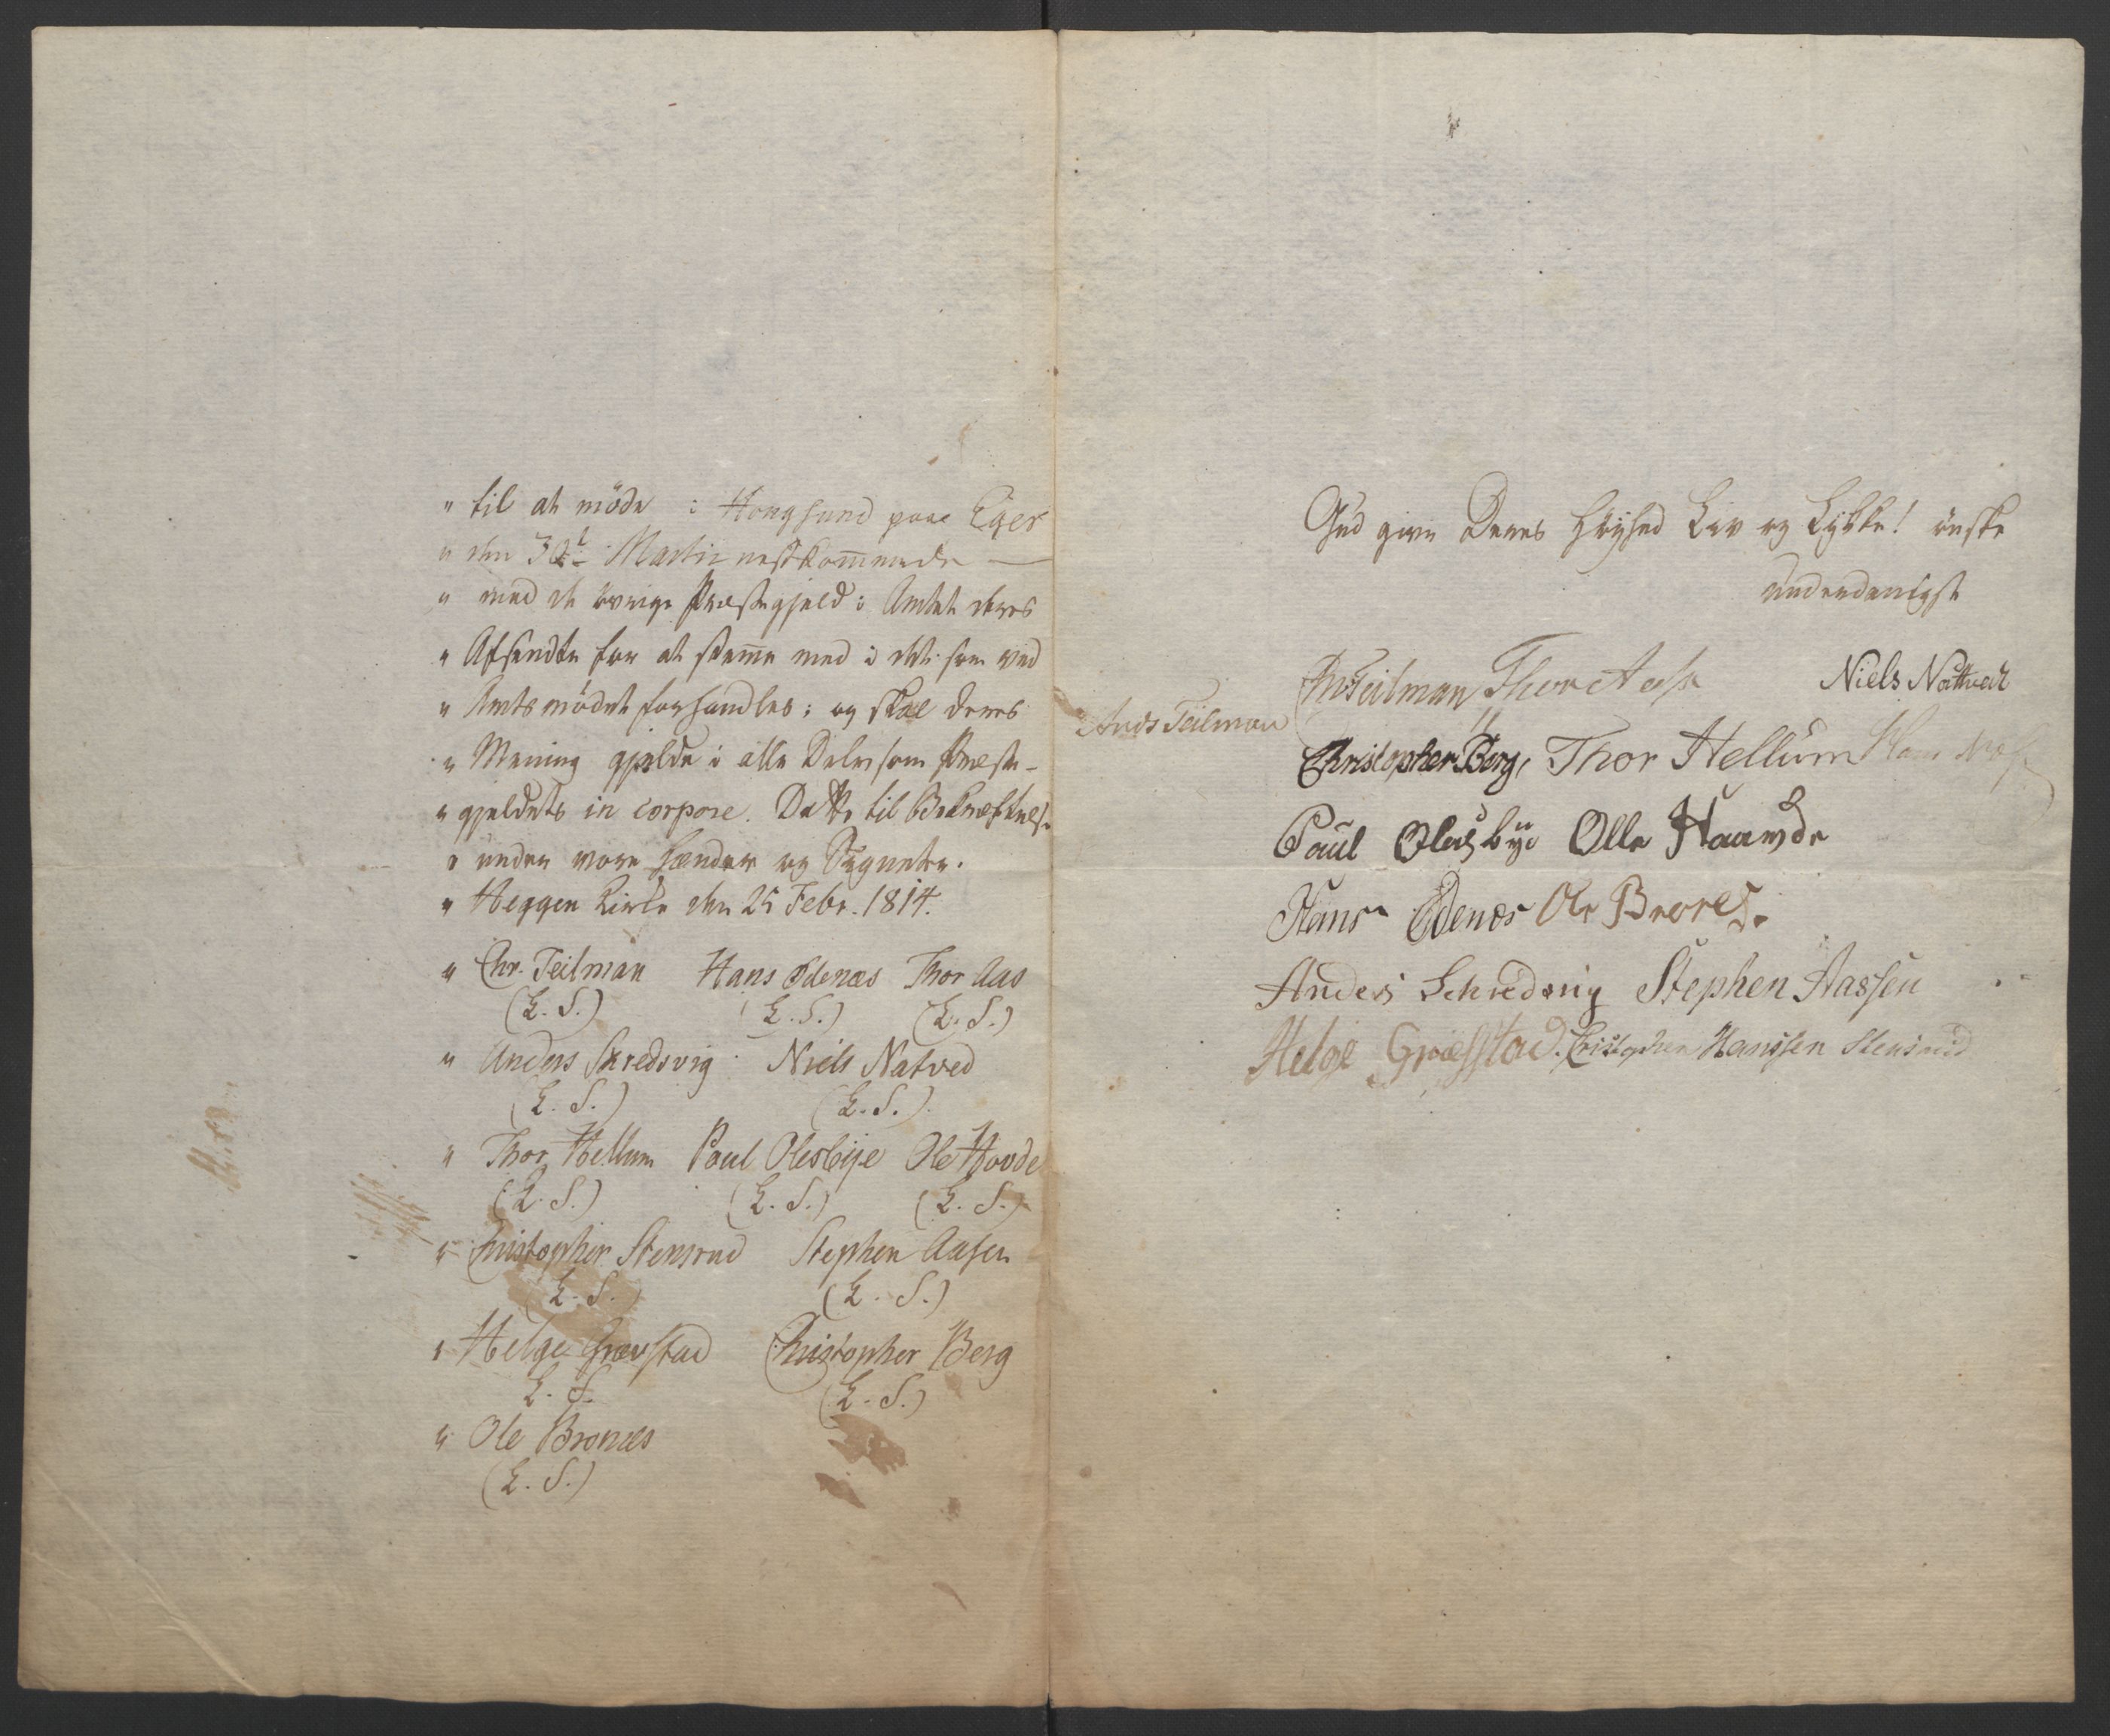 " til at möde i Hougsund paa Eger
" den 30t Martii nestkommende —
" med de övrige Præstegjeld i Amtet deres
" Afsendte for at stemme med i det som ved
" Amtsmödet forhandles; og skal deres
" Mening gjelde i alle Dele som Præste-
" gjeldets in corpore. Dette til Bekræftelse
" under vore Hænder og Signeter.
" Heggen Kirke den 25 Febr. 1814.
" Chr. Teilman Hans Ødenæs Thor Aas
(L. S.) (L. S.) (L. S.)
" Anders Skredsvig Niels Natved
(L. S.) (L. S.)
" Thor Hellum Poul Olesbye Ole Hovde
(L. S.) (L. S.) (L. S.)
" Christopher Stensrud Stephen Aasen
(L. S.) (L. S.)
" Helge Grævstad Christopher Berg
L. S. (L. S.)
" Ole Bronæs
(L. S.)
Gud give Deres Höyhed Liv og Lykke! önske
underdanigst
Chr Teilman Thor Aass Niels Nattved
Ands Teilman
Christopher Berg, Thor Hellum Hans
Paul Olesbye Olle Haawde
Hans Ødenæs Ole Brones.
Anders Schredsvig Stephen Aassen
Helge Græfstad. Cristopher Hanssen Stensrud